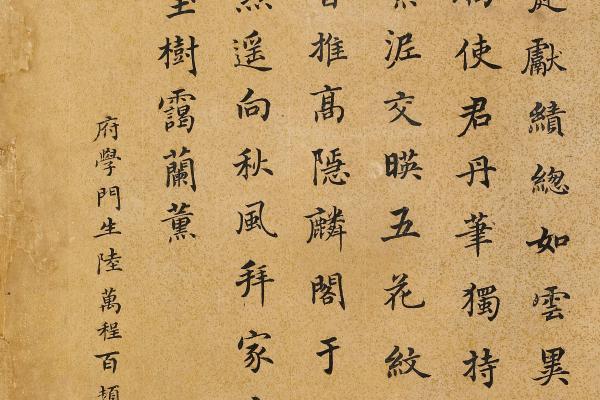 獻績總如雲異
使君丹筆獨持
泥交暎五花紋
推高隱麟閣于
遥向秋風拜家
玉樹靄蘭薰
府學門生陸萬程百頓